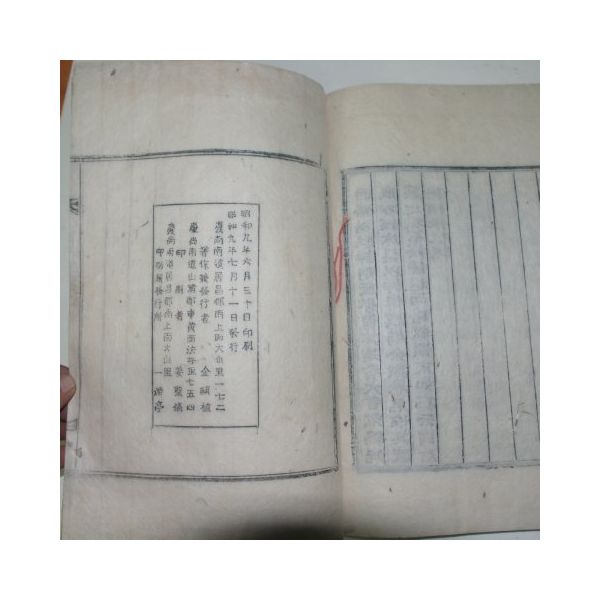 昭和九年六月三十日印刷
昭和九年七月十一日發行
慶尚南道居昌郡南上面大山里一七二
著作兼發行者 金 植
慶尚南道山淸郡 黃面法 里七五四
印刷者 姜
慶尚南道居昌郡南上面大山里
印刷兼發行所 一 亭